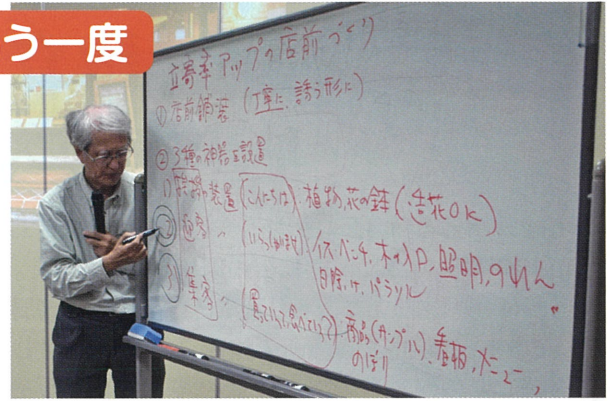 う一度
立寄率アップの店前づくり
① 店前舗装 (丁寧に、誘う形に)
② 3種の神器を設置
1) 挨拶装置 (こんにちは) 植物、花の鉢 (造花OK)
② 迎客 〃 (いらっしゃいませ) イス・ベンチ、木の入口、照明、のれん
日除け、パラソル 〃
③ 集客 〃 (買っていって、食べていって) 商品(サンプル)、看板、メニュー、
のぼり